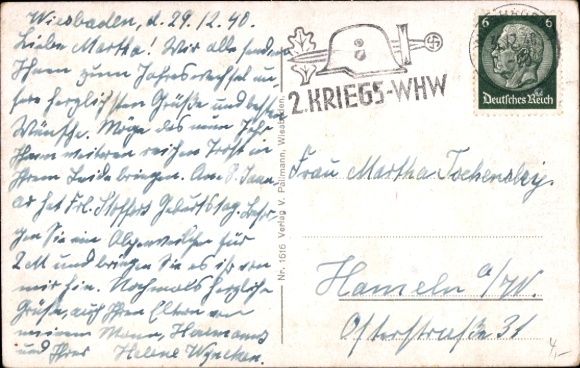 Wiesbaden, d. 29.12.40.
Liebe Martha! Wir alle senden
Ihnen zum Jahreswechsel un-
sere herzlichsten Grüße und besten
Wünsche. Möge das neue Jahr
Ihnen weiteren reichen Trost in
Ihrem Leide bringen. Am 8. Janu-
ar hat Frl. Stofferts Geburtstag. Besor-
gen Sie ein Alpenveilchen für
2 M und bringen Sie es ihr von
mir hin. Nochmals herzliche
Grüße, auch Ihren Eltern von
meinem Mann, Hannames
und Ihrer Helene Wyneken.
Nr. 1616 Verlag V. Pallmann, Wiesbaden.
2. KRIEGS-WHW
6 6
Deutsches Reich
Frau Martha
Hameln a/W.
Osterstraße 31
4,-